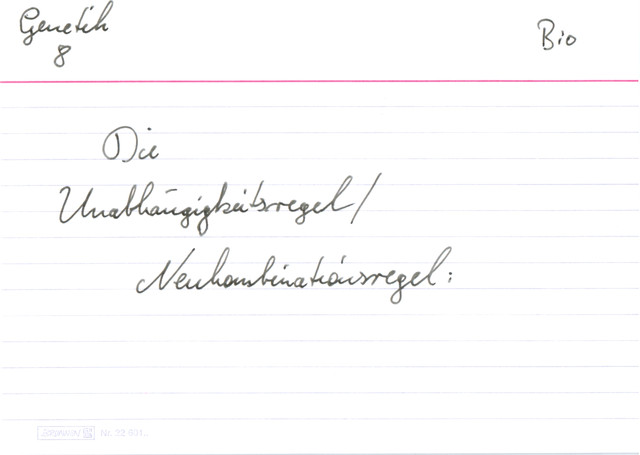 Genetik
8
Bio
Die
Unabhängigkeitsregel/
Neukombinationsregel:
BRUNNEN Nr. 22 601..